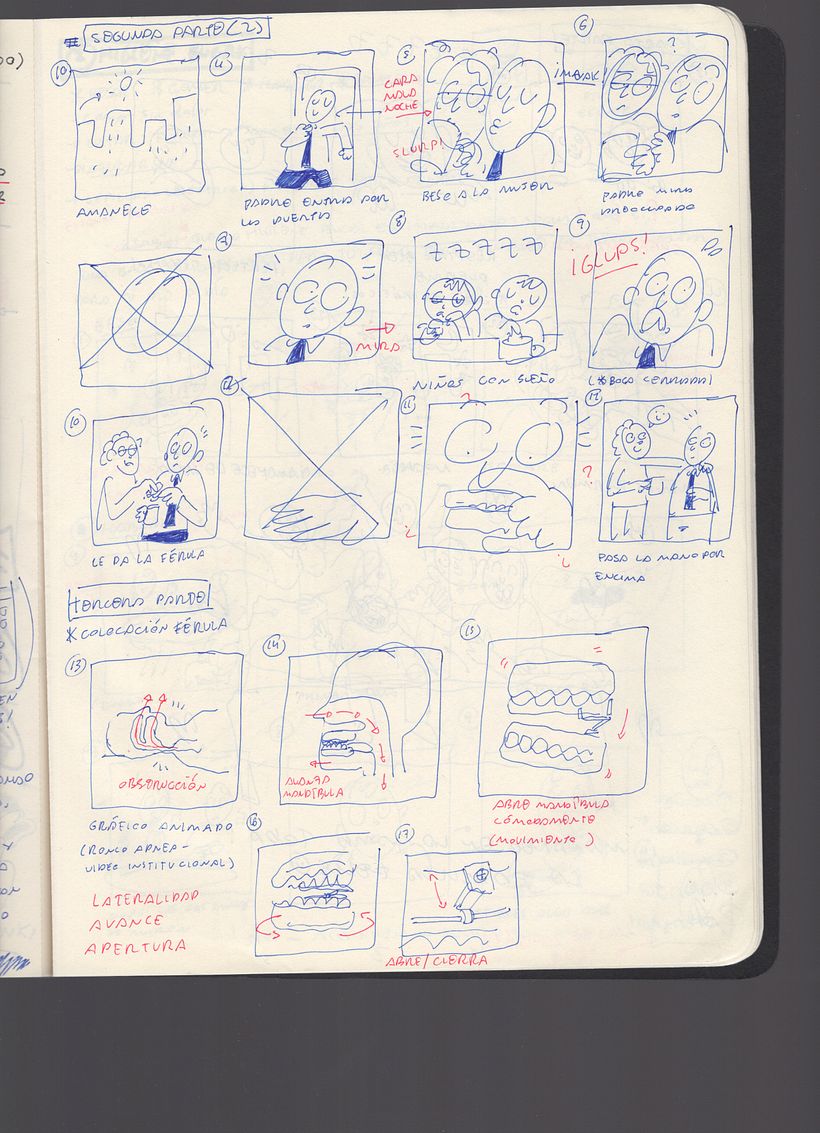 SEGUNDA PARTE (2)
AMANECE
PADRE ENTRA POR
LA PUERTA
CARA
MALA
NOCHE
SLURP!
BESO A LA MUJER
6
¡MUAK!
?
PADRE MIRA
PREOCUPADO
7
MIRA
8
ZZZZZ
NIÑOS CON SUEÑO
9
¡GLUPS!
(*BOCA CERRADA)
10
LE DA LA FÉRULA
11
?
?
¿
¿
12
PASA LA MANO POR
ENCIMA
TERCERA PARTE
* COLOCACIÓN FÉRULA
13
OBSTRUCCIÓN
GRÁFICO ANIMADO
(RONCO APNEA -
VIDEO INSTITUCIONAL)
LATERALIDAD
AVANCE
APERTURA
14
AVANZA
MANDÍBULA
15
ABRE MANDÍBULA
CÓMODAMENTE
(MOVIMIENTO)
16
17
ABRE/CIERRA